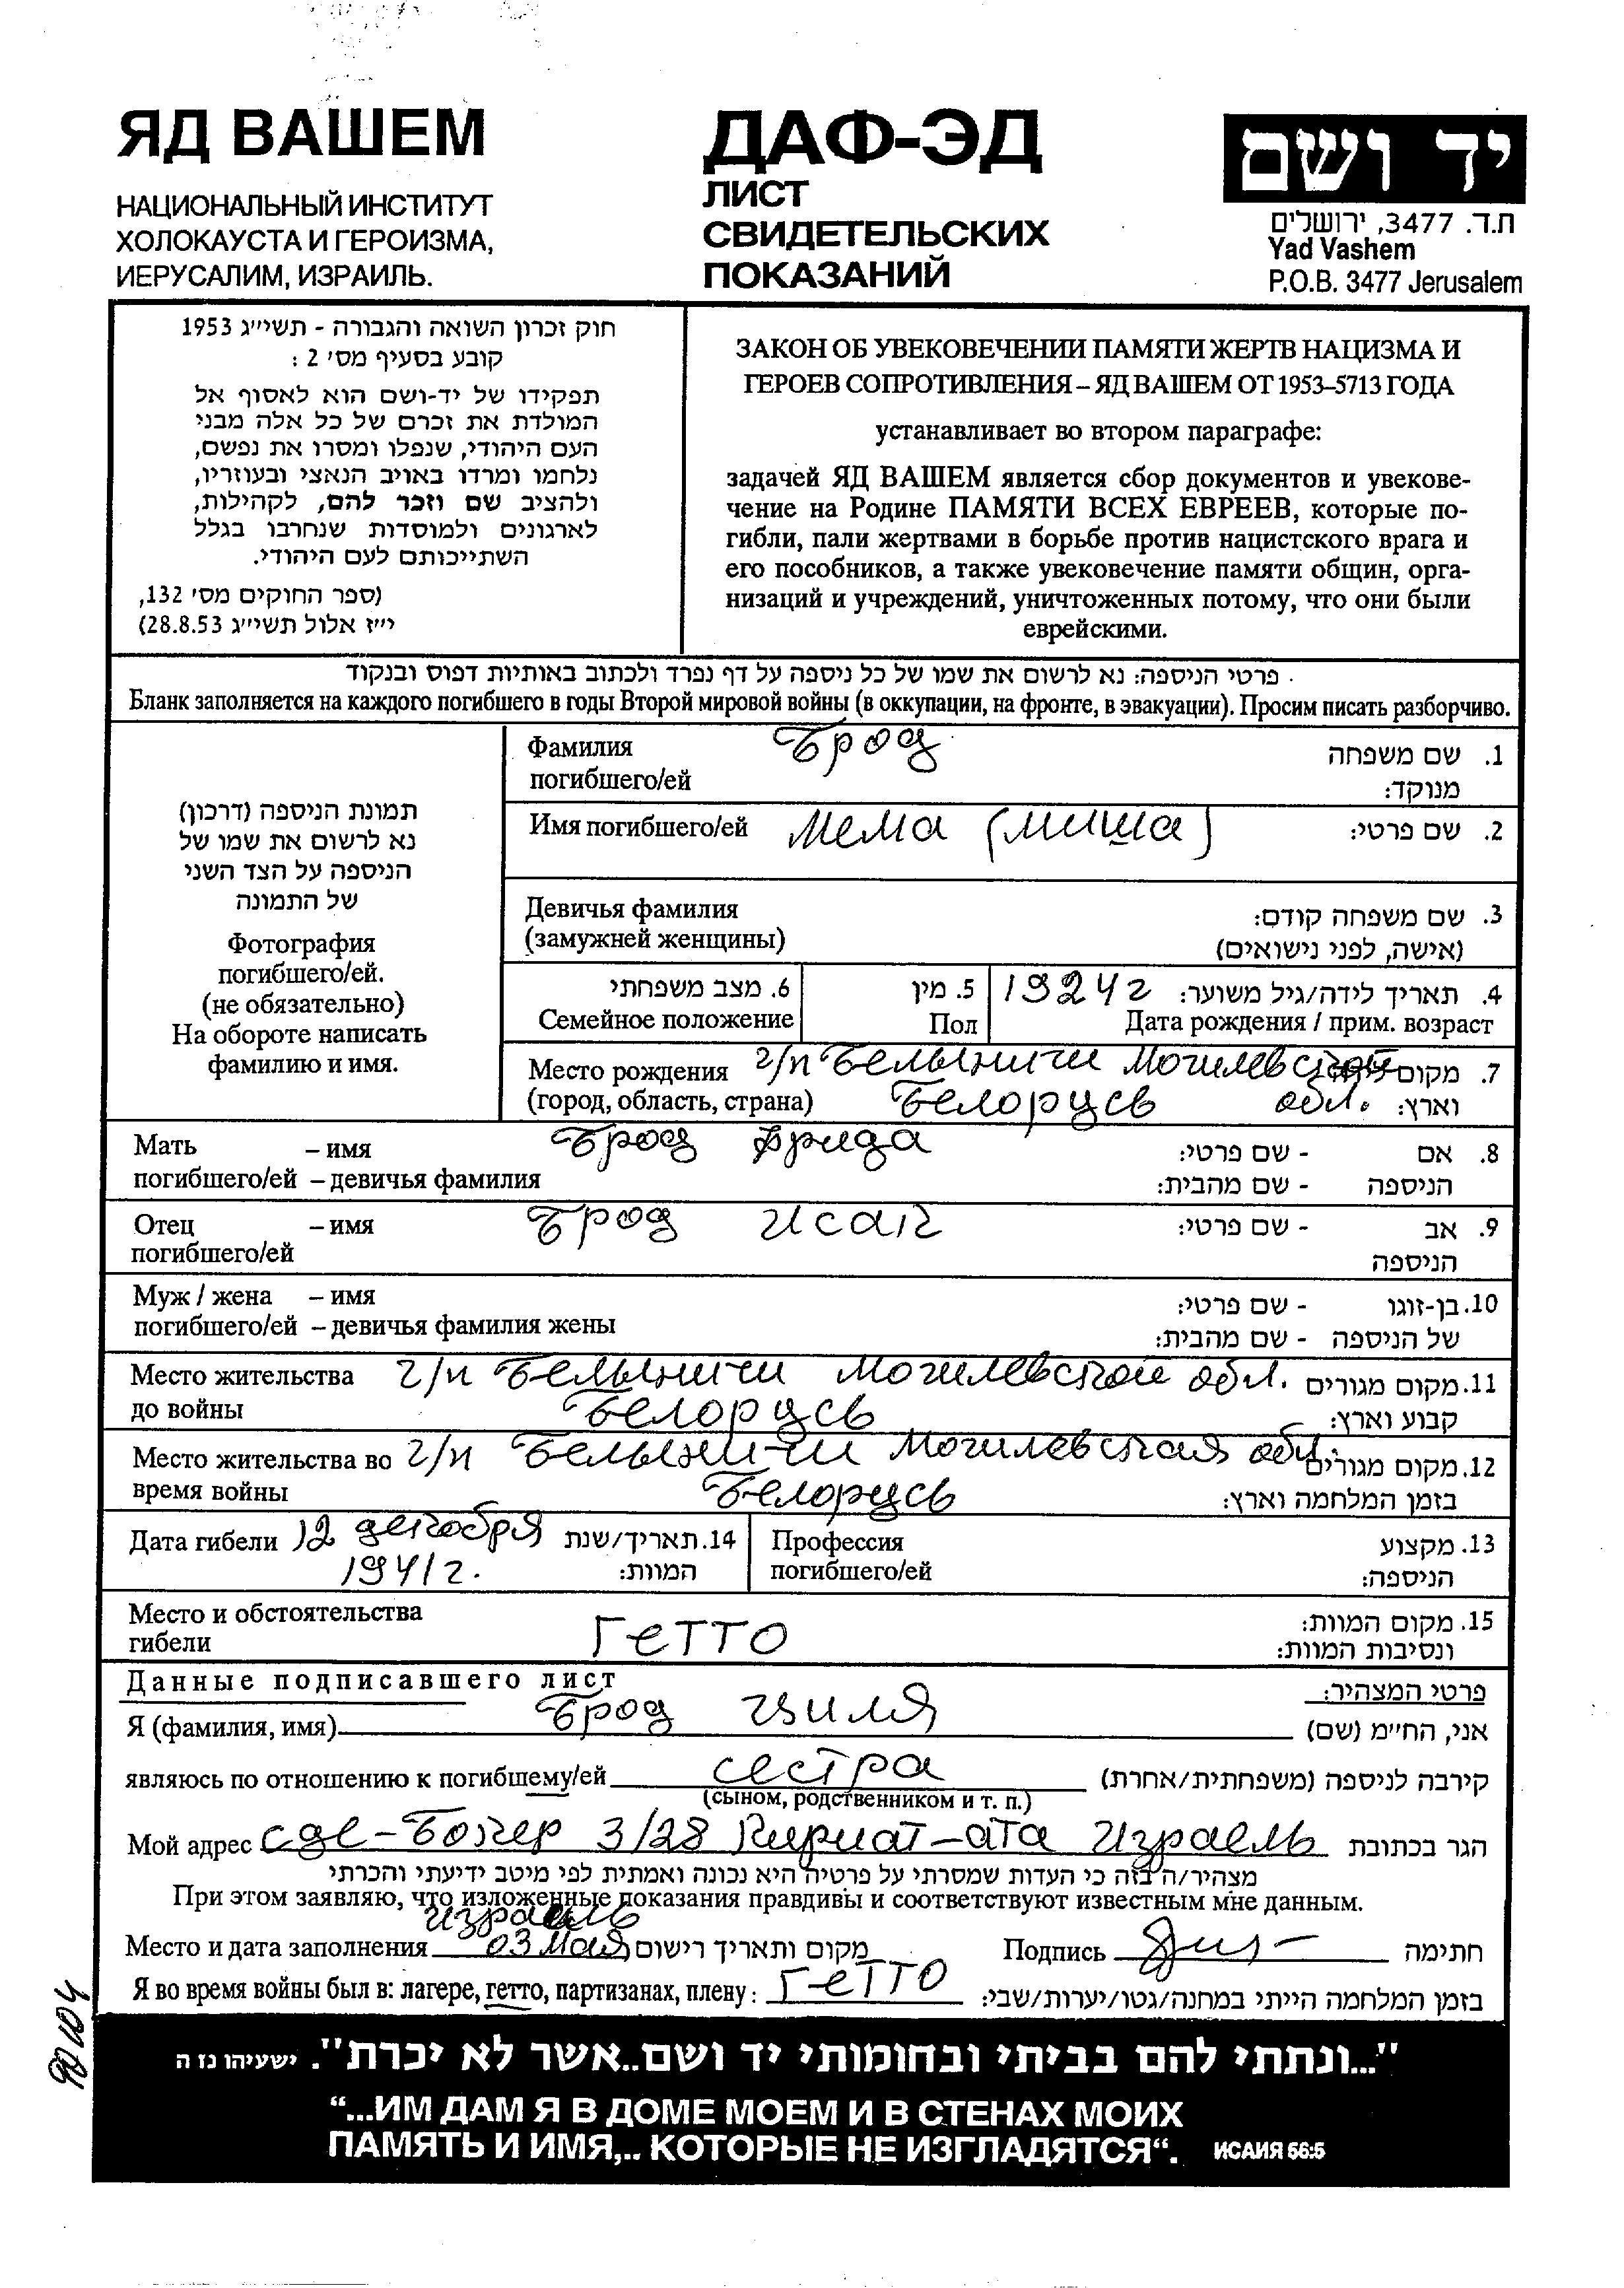 ЯД ВАШЕМ
НАЦИОНАЛЬНЫЙ ИНСТИТУТ
ХОЛОКАУСТА И ГЕРОИЗМА,
ИЕРУСАЛИМ, ИЗРАИЛЬ.
ДАФ-ЭД
ЛИСТ
СВИДЕТЕЛЬСКИХ
ПОКАЗАНИЙ
יד ושם
ת.ד. 3477, ירושלים
Yad Vashem
P.O.B. 3477 Jerusalem
חוק זכרון השואה והגבורה - תשי״ג 1953
קובע בסעיף מס׳ 2 :
תפקידו של יד-ושם הוא לאסוף אל
המולדת את זכרם של כל אלה מבני
העם היהודי, שנפלו ומסרו את נפשם,
נלחמו ומרדו באויב הנאצי ובעוזריו,
ולהציב שם וזכר להם, לקהילות,
לארגונים ולמוסדות שנחרבו בגלל
השתייכותם לעם היהודי.
(ספר החוקים מס׳ 132,
י״ז אלול תשי״ג 28.8.53)
ЗАКОН ОБ УВЕКОВЕЧЕНИИ ПАМЯТИ ЖЕРТВ НАЦИЗМА И
ГЕРОЕВ СОПРОТИВЛЕНИЯ – ЯД ВАШЕМ ОТ 1953–5713 ГОДА
устанавливает во втором параграфе:
задачей ЯД ВАШЕМ является сбор документов и увекове-
чение на Родине ПАМЯТИ ВСЕХ ЕВРЕЕВ, которые по-
гибли, пали жертвами в борьбе против нацистского врага и
его пособников, а также увековечение памяти общин, орга-
низаций и учреждений, уничтоженных потому, что они были
еврейскими.
פרטי הניספה: נא לרשום את שמו של כל ניספה על דף נפרד ולכתוב באותיות דפוס ובנקוד
Бланк заполняется на каждого погибшего в годы Второй мировой войны (в оккупации, на фронте, в эвакуации). Просим писать разборчиво.
תמונת הניספה (דרכון)
נא לרשום את שמו של
הניספה על הצד השני
של התמונה
Фотография
погибшего/ей.
(не обязательно)
На обороте написать
фамилию и имя.
Фамилия Брод 1. שם משפחה
погибшего/ей מנוקד:
Имя погибшего/ей Мема (Миша) 2. שם פרטי:
Девичья фамилия 3. שם משפחה קודם:
(замужней женщины) (אישה, לפני נישואים)
6. מצב משפחתי 5. מין 1924г 4. תאריך לידה/גיל משוער:
Семейное положение Пол Дата рождения / прим. возраст
Место рождения г/п Белыничи Могилевской 7. מקום
(город, область, страна) Белорусь обл. וארץ:
Мать – имя Брод Фрида 8. אם - שם פרטי:
погибшего/ей – девичья фамилия הניספה - שם מהבית:
Отец – имя Брод Исак 9. אב - שם פרטי:
погибшего/ей הניספה
Муж / жена – имя 10. בן-זוגו - שם פרטי:
погибшего/ей – девичья фамилия жены של הניספה - שם מהבית:
Место жительства г/п Белыничи Могилевской обл. 11. מקום מגורים
до войны Белорусь קבוע וארץ:
Место жительства во г/п Белыничи Могилевская обл. 12. מקום מגורים
время войны Белорусь בזמן המלחמה וארץ:
Дата гибели 12 декабря 14. תאריך/שנת Профессия 13. מקצוע
1941г. המוות: погибшего/ей הניספה:
Место и обстоятельства 15. מקום המוות:
гибели Гетто ונסיבות המוות:
Данные подписавшего лист פרטי המצהיר:
Я (фамилия, имя) Брод Циля אני, הח״מ (שם)
являюсь по отношению к погибшему/ей сестра קירבה לניספה (משפחתית/אחרת)
(сыном, родственником и т. п.)
Мой адрес сде-Бокер 3/28 Кириат-ата Израель הגר בכתובת
מצהיר/ה בזה כי העדות שמסרתי על פרטיה היא נכונה ואמתית לפי מיטב ידיעתי והכרתי
При этом заявляю, что изложенные показания правдивы и соответствуют известным мне данным.
Израель
Место и дата заполнения 03 мая מקום ותאריך רישום Подпись חתימה
Я во время войны был в: лагере, гетто, партизанах, плену: Гетто בזמן המלחמה הייתי במחנה/גטו/יערות/שבי:
"...ונתתי להם בביתי ובחומותי יד ושם..אשר לא יכרת". ישעיהו נז ה
“...ИМ ДАМ Я В ДОМЕ МОЕМ И В СТЕНАХ МОИХ
ПАМЯТЬ И ИМЯ,.. КОТОРЫЕ НЕ ИЗГЛАДЯТСЯ“. ИСАИЯ 56:5